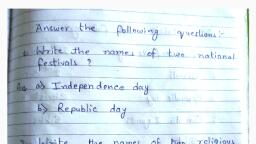 Answer the following questions:-
1. Write the names of two national
festivals ?
Ans a) Independence day
b) Republic day
2. Write the names of two religious